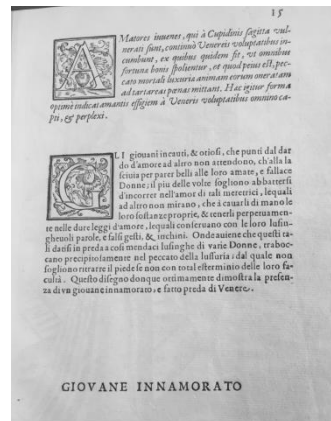 15
AMatores iuuenes, qui à Cupidinis sagitta vul-
nerati sunt, continuò Venereis voluptatibus in-
cumbunt, ex quibus quidem fit, vt omnibus
fortuna bonis spolientur, et quod peius est, pec-
cato mortali luxuria animam eorum oneratam
ad tartareas pœnas mittant. Hac igitur forma
optimè indicat amantis effigiem à Veneris voluptatibus omnino ca-
pti, & perplexi.
GLI giouani incauti, & otiosi, che punti dal dar
do d'amore ad altro non attendono, ch'alla la
sciuia per parer belli alle loro amate, e fallace
Donne; il più delle volte sogliono abbattersi
d'incorrer nell'amor di tali meretrici, lequali
ad altro non mirano, che à cauarli di mano le
loro sostanze proprie, & tenerli perpetuamen-
te nelle dure leggi d'amore, lequali conseruano con le loro lusin-
gheuoli parole, e falsi gesti, & inchini. Onde auiene che questi ta-
li dansi in preda a così mendaci lusinghe di varie Donne, traboc-
cano precipitosamente nel peccato della lussuria; dal quale non
sogliono ritrarre il piede se non con total esterminio delle loro fa-
cultà. Questo disegno donque ottimamente dimostra la presen-
za di vn giouane innamorato, e fatto preda di Venere.
GIOVANE INNAMORATO